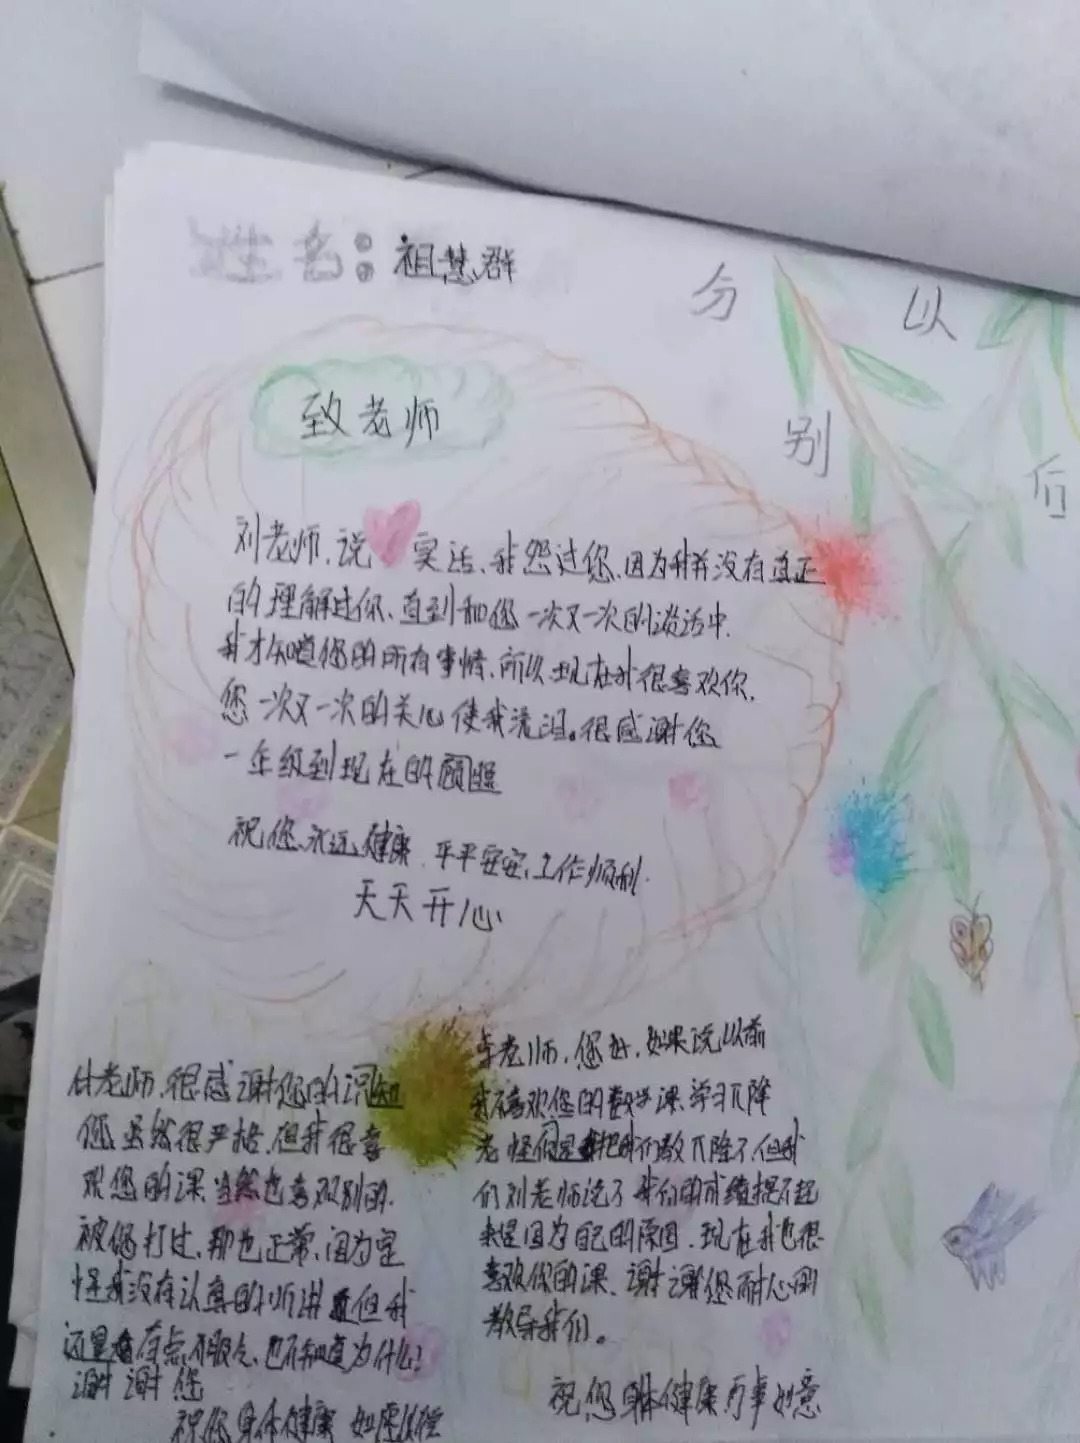 姓名：祖慧群
分别以后
致老师
刘老师，说实话、我怨过您，因为我并没有真正
的理解过你、直到和您一次又一次的谈话中.
我才知道您的所有事情、所以现在我很喜欢你.
您一次又一次的关心使我流泪。很感谢您
一年级到现在的顾照
祝您永远健康、平平安安、工作顺利.
天天开心
付老师，很感谢您的识知
您虽然很严格，但我很喜
欢您的课、当然也喜欢别的.
被你打过、那也正常、因为
怪我没有认真的听讲但我
还是有点不服气、也不知道为什么?
谢谢您
祝你身体健康
老师，您好，如果说以前
我不喜欢您的数学课、学习下降
老怪你是把我们教下降了，但我
们刘老师说了我们的成绩提不起
来是因为自己的原因、现在我也很
喜欢你的课、谢谢您耐心的
教导我们。
祝您身体健康万事如意